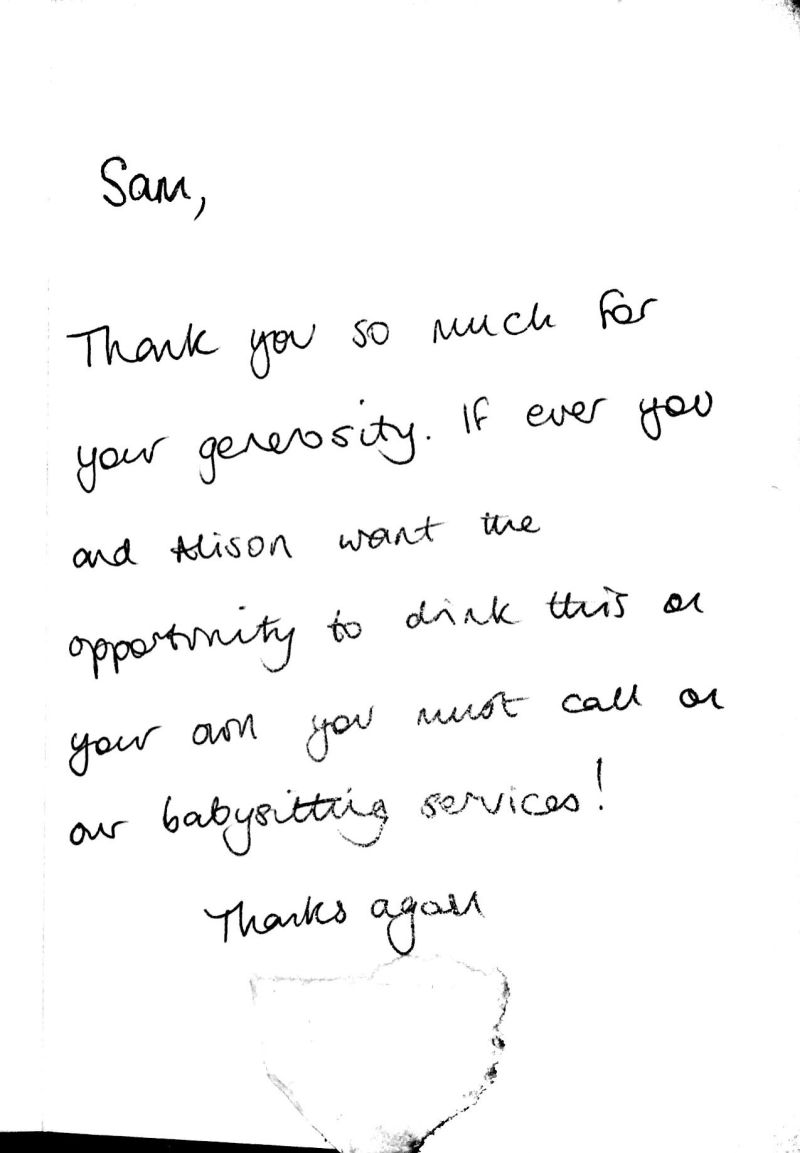 Sam,
Thank you so much for
your generosity. If ever you
and Alison want the
opportunity to drink this on
your own you must call on
our babysitting services!
Thanks again